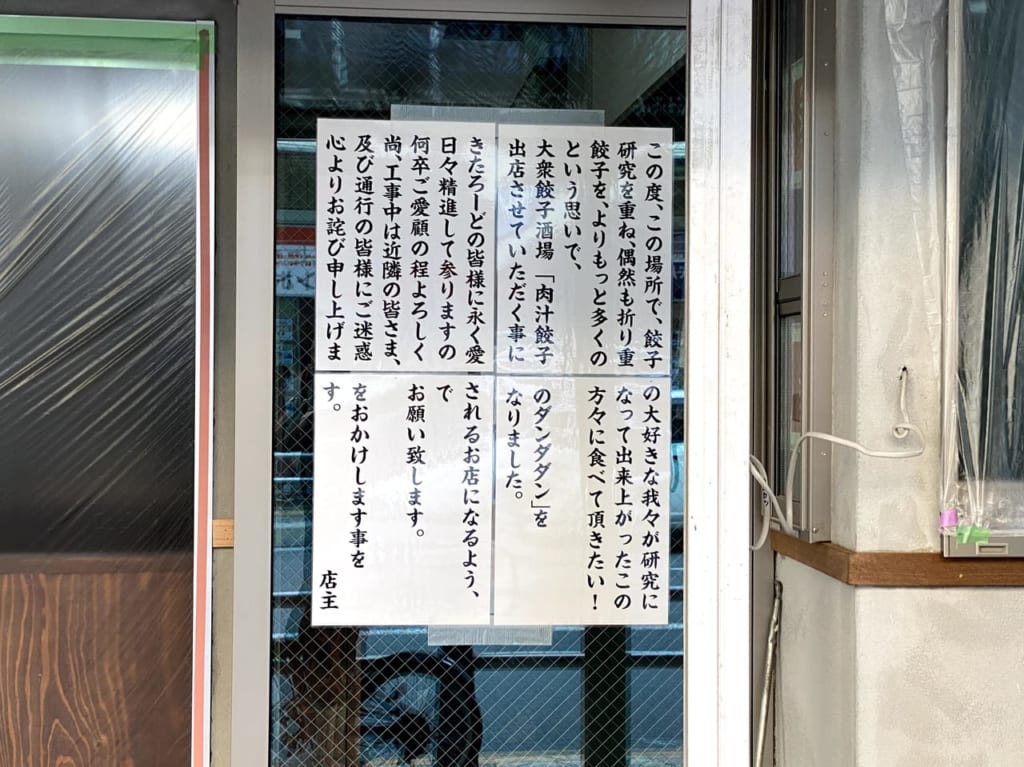 この度、この場所で、餃子の大好きな我々が研究に
研究を重ね、偶然も折り重なって出来上がったこの
餃子を、よりもっと多くの方々に食べて頂きたい！
という思いで、
大衆餃子酒場「肉汁餃子のダンダダン」を
出店させていただく事になりました。
きたろーどの皆様に永く愛されるお店になるよう、
日々精進して参りますので
何卒ご愛顧の程よろしくお願い致します。
尚、工事中は近隣の皆さま、
及び通行の皆様にご迷惑をおかけします事を
心よりお詫び申し上げます。
店主